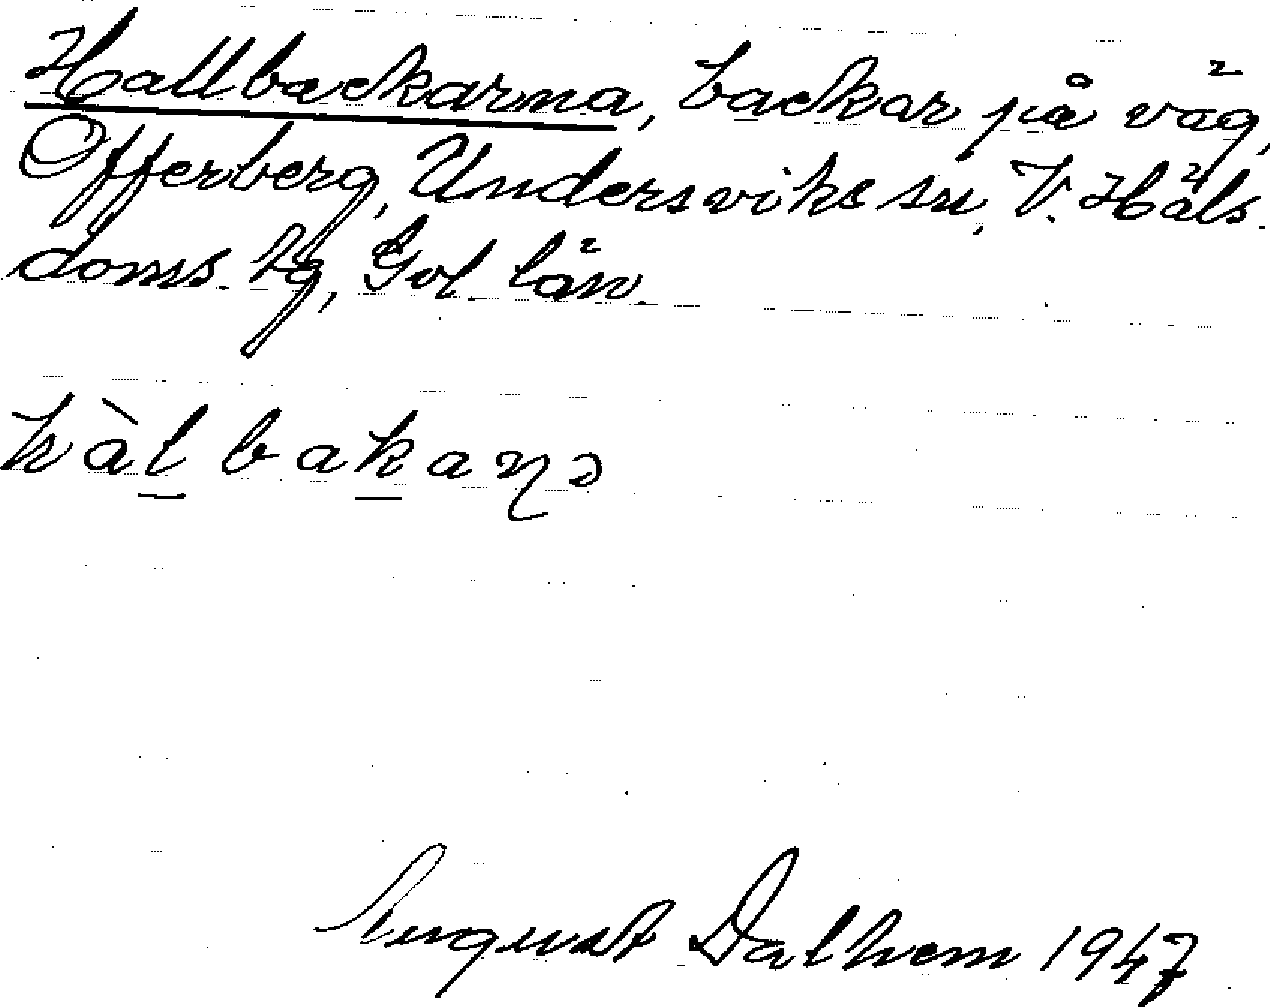 Hallbackarna, backar på väg,
Offerberg, Undersviks sn, V. Häls.
doms. lg, Gvl. län.
hàl bakaɳə
August Dalhem 1947